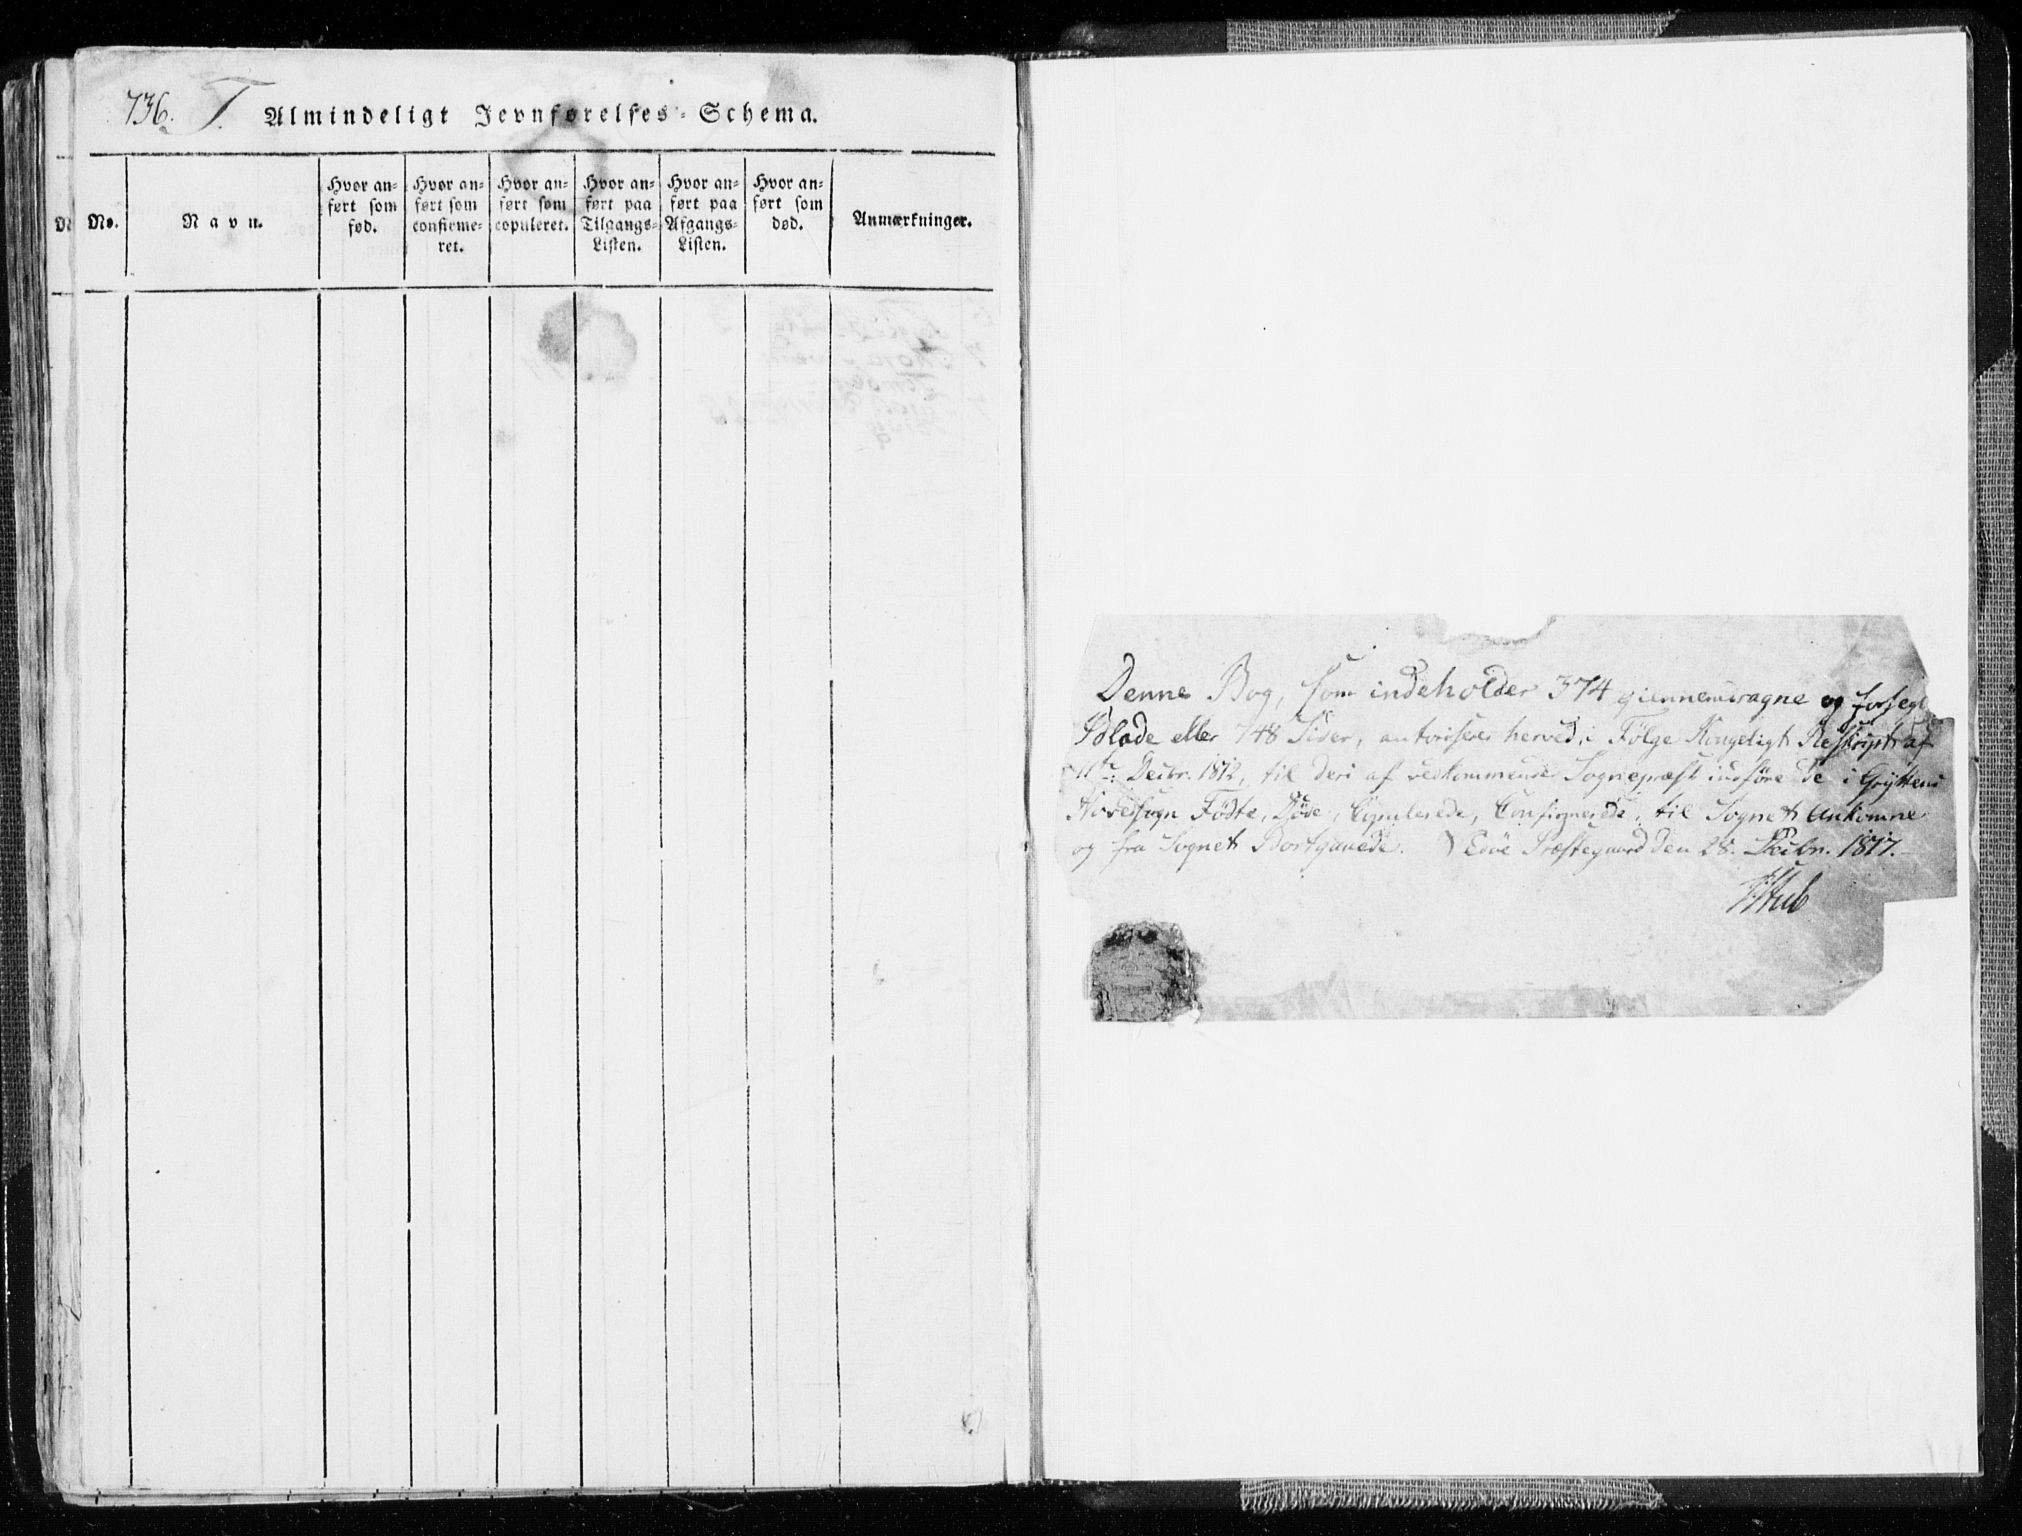 736. T. Almindeligt Jevnførelses-Schema.
No.
Navn.
Hvor an-
ført som
fød.
Hvor an-
ført som
confirme-
ret.
Hvor an-
ført som
copuleret.
Hvor an-
ført paa
Tilgangs-
Listen.
Hvor an-
ført paa
Afgangs-
Listen.
Hvor an-
ført som
død.
Anmærkninger.
Denne Bog, som indeholder 374 giennemdragne og forsegl
Blade eller 748 Sider, autoriseres herved, i Følge Kongeligt Reskript af
11te Decbr. 1812, til deri af vedkommende Sognepræst indføre de i Gryttens
Hovedsogn Födte, Döde, Copulerede, Confirmerede, til Sognet Ankomne
og fra Sognet Bortgaaede. Edöe Præstegaard den 28. Decbr. 1817.
Stub